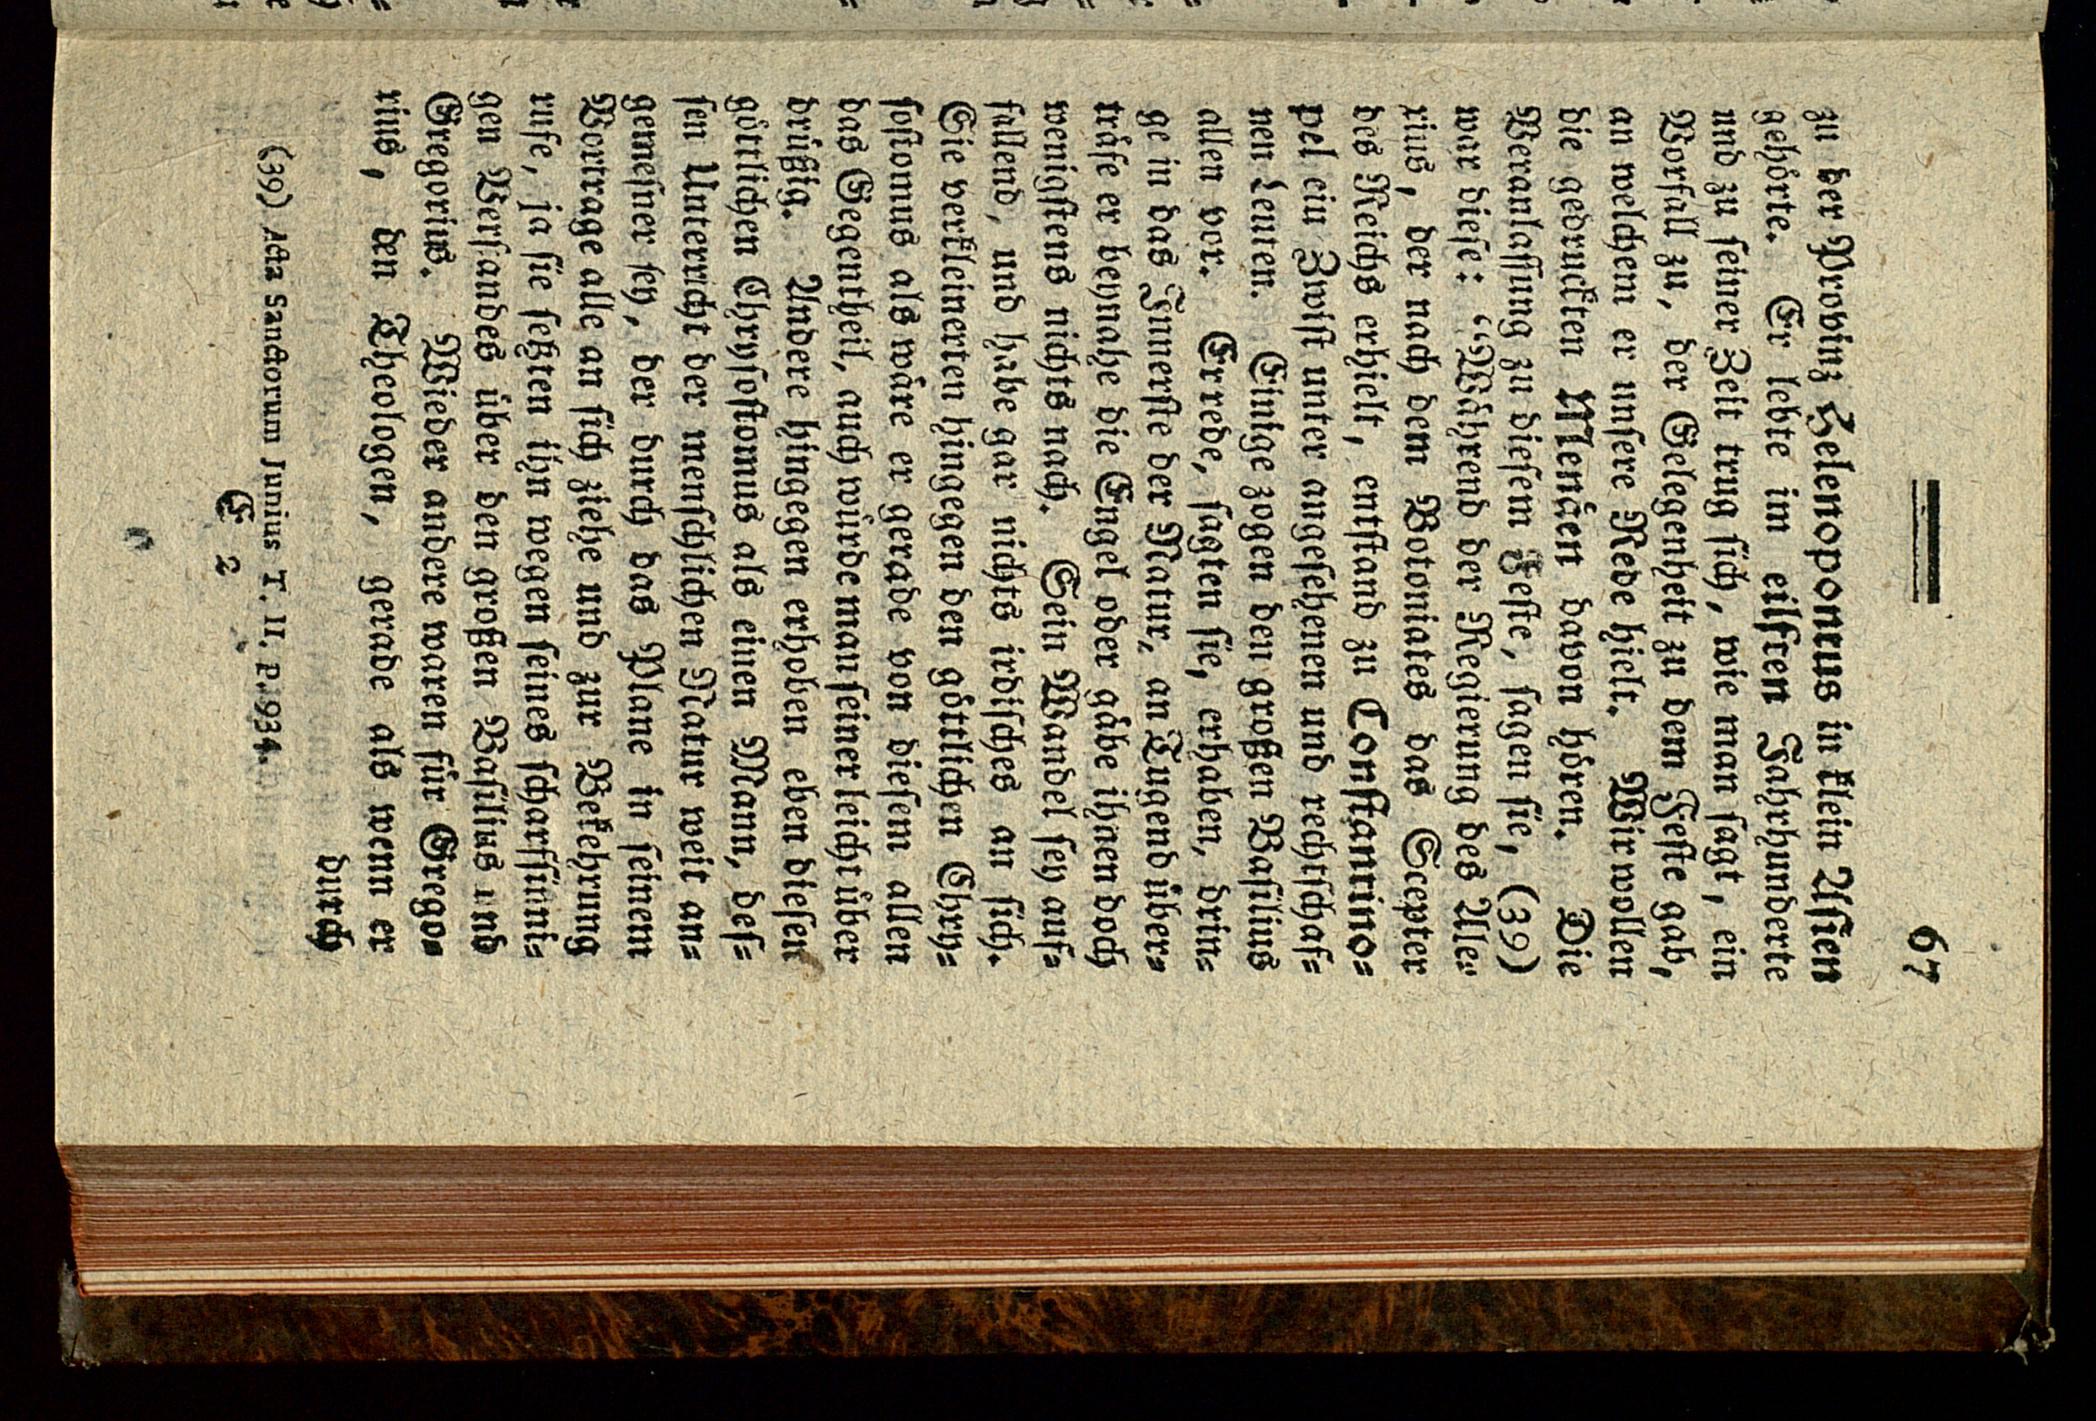 67
zu der Provinz Helenopontus in klein Asien
gehörte. Er lebte im eilften Jahrhunderte
und zu seiner Zeit trug sich, wie man sagt, ein
Vorfall zu, der Gelegenheit zu dem Feste gab,
an welchem er unsere Rede hielt. Wir wollen
die gedruckten Menäen davon hören. Die
Veranlassung zu diesem Feste, sagen sie, (39)
war diese: “Während der Regierung des Ale-
xius, der nach dem Botoniates das Scepter
des Reichs erhielt, entstand zu Constantino-
pel ein Zwist unter angesehenen und rechtschaf-
nen Leuten. Einige zogen den großen Basilius
allen vor. Er rede, sagten sie, erhaben, drin-
ge in das Innerste der Natur, an Tugend über-
träfe er beynahe die Engel oder gäbe ihnen doch
wenigstens nichts nach. Sein Wandel sey auf-
fallend, und habe gar nichts irdisches an sich.
Sie verkleinerten hingegen den göttlichen Chry-
sostomus als wäre er gerade von diesem allen
das Gegentheil, auch würde man seiner leicht über
drüßig. Andere hingegen erhoben eben diesen
göttlichen Chrysostomus als einen Mann, des-
sen Unterricht der menschlichen Natur weit an-
gemeßner sey, der durch das Plane in seinem
Vortrage alle an sich ziehe und zur Bekehrung
rufe, ja sie setzten ihn wegen seines scharfsinni-
gen Verstandes über den großen Basilius und
Gregorius. Wieder andere waren für Grego-
rius, den Theologen, gerade als wenn er
durch
(39) Acta Sanctorum Junius T. II. p. 934.
E 2